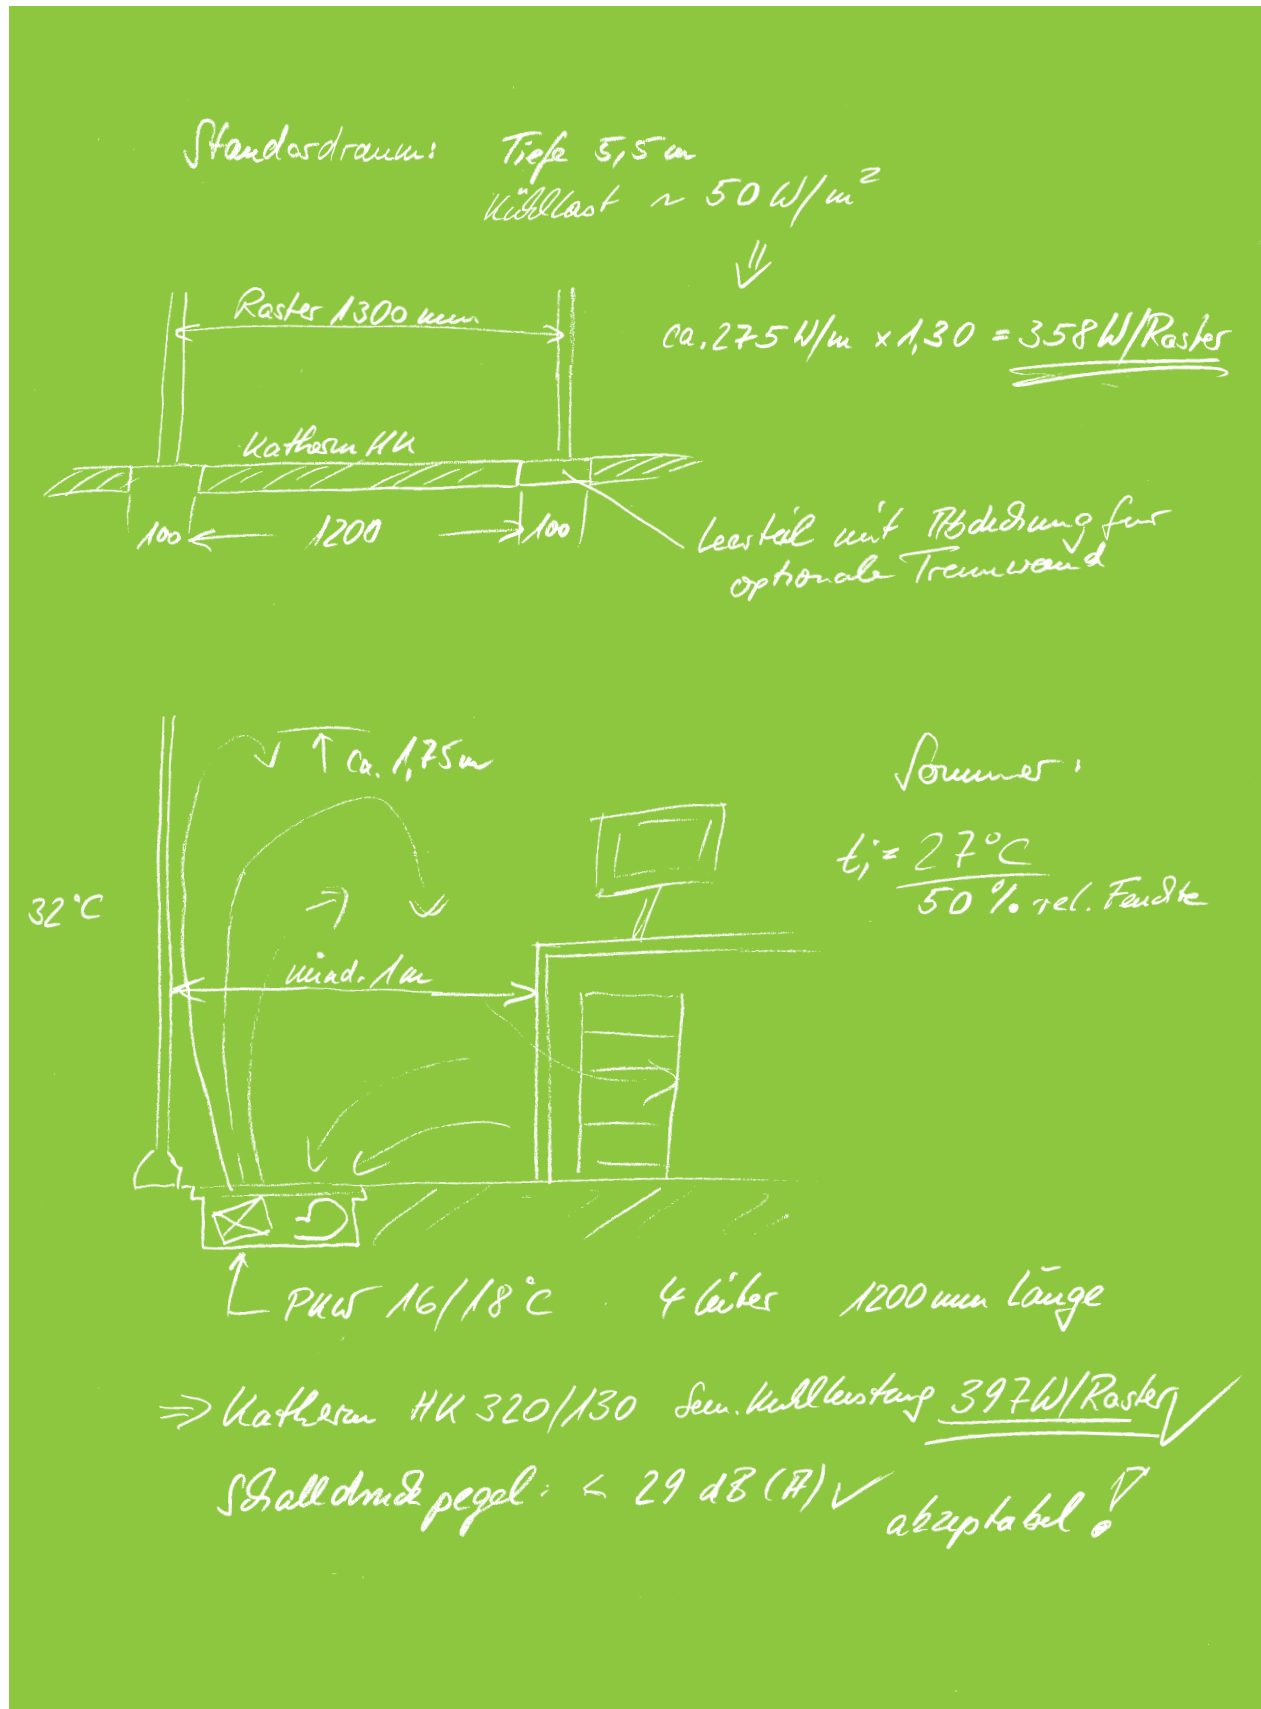 Standardraum: Tiefe 5,5 m
Kühllast ~ 50 W/m²
⇓
ca. 275 W/m x 1,30 = 358 W/Raster
Raster 1300 mm
Katherm HK
100 1200 100
Leerteil mit Abdeckung für
optionale Trennwand
ca. 1,75 m
Sommer:
ti = 27°C
50 % rel. Feuchte
32°C
mind. 1 m
PKW 16/18°C 4 Leiter 1200 mm Länge
⇒ Katherm HK 320/130 Sen. Kühlleistung 397 W/Raster ✓
Schalldruckpegel: < 29 dB (A) ✓ akzeptabel!